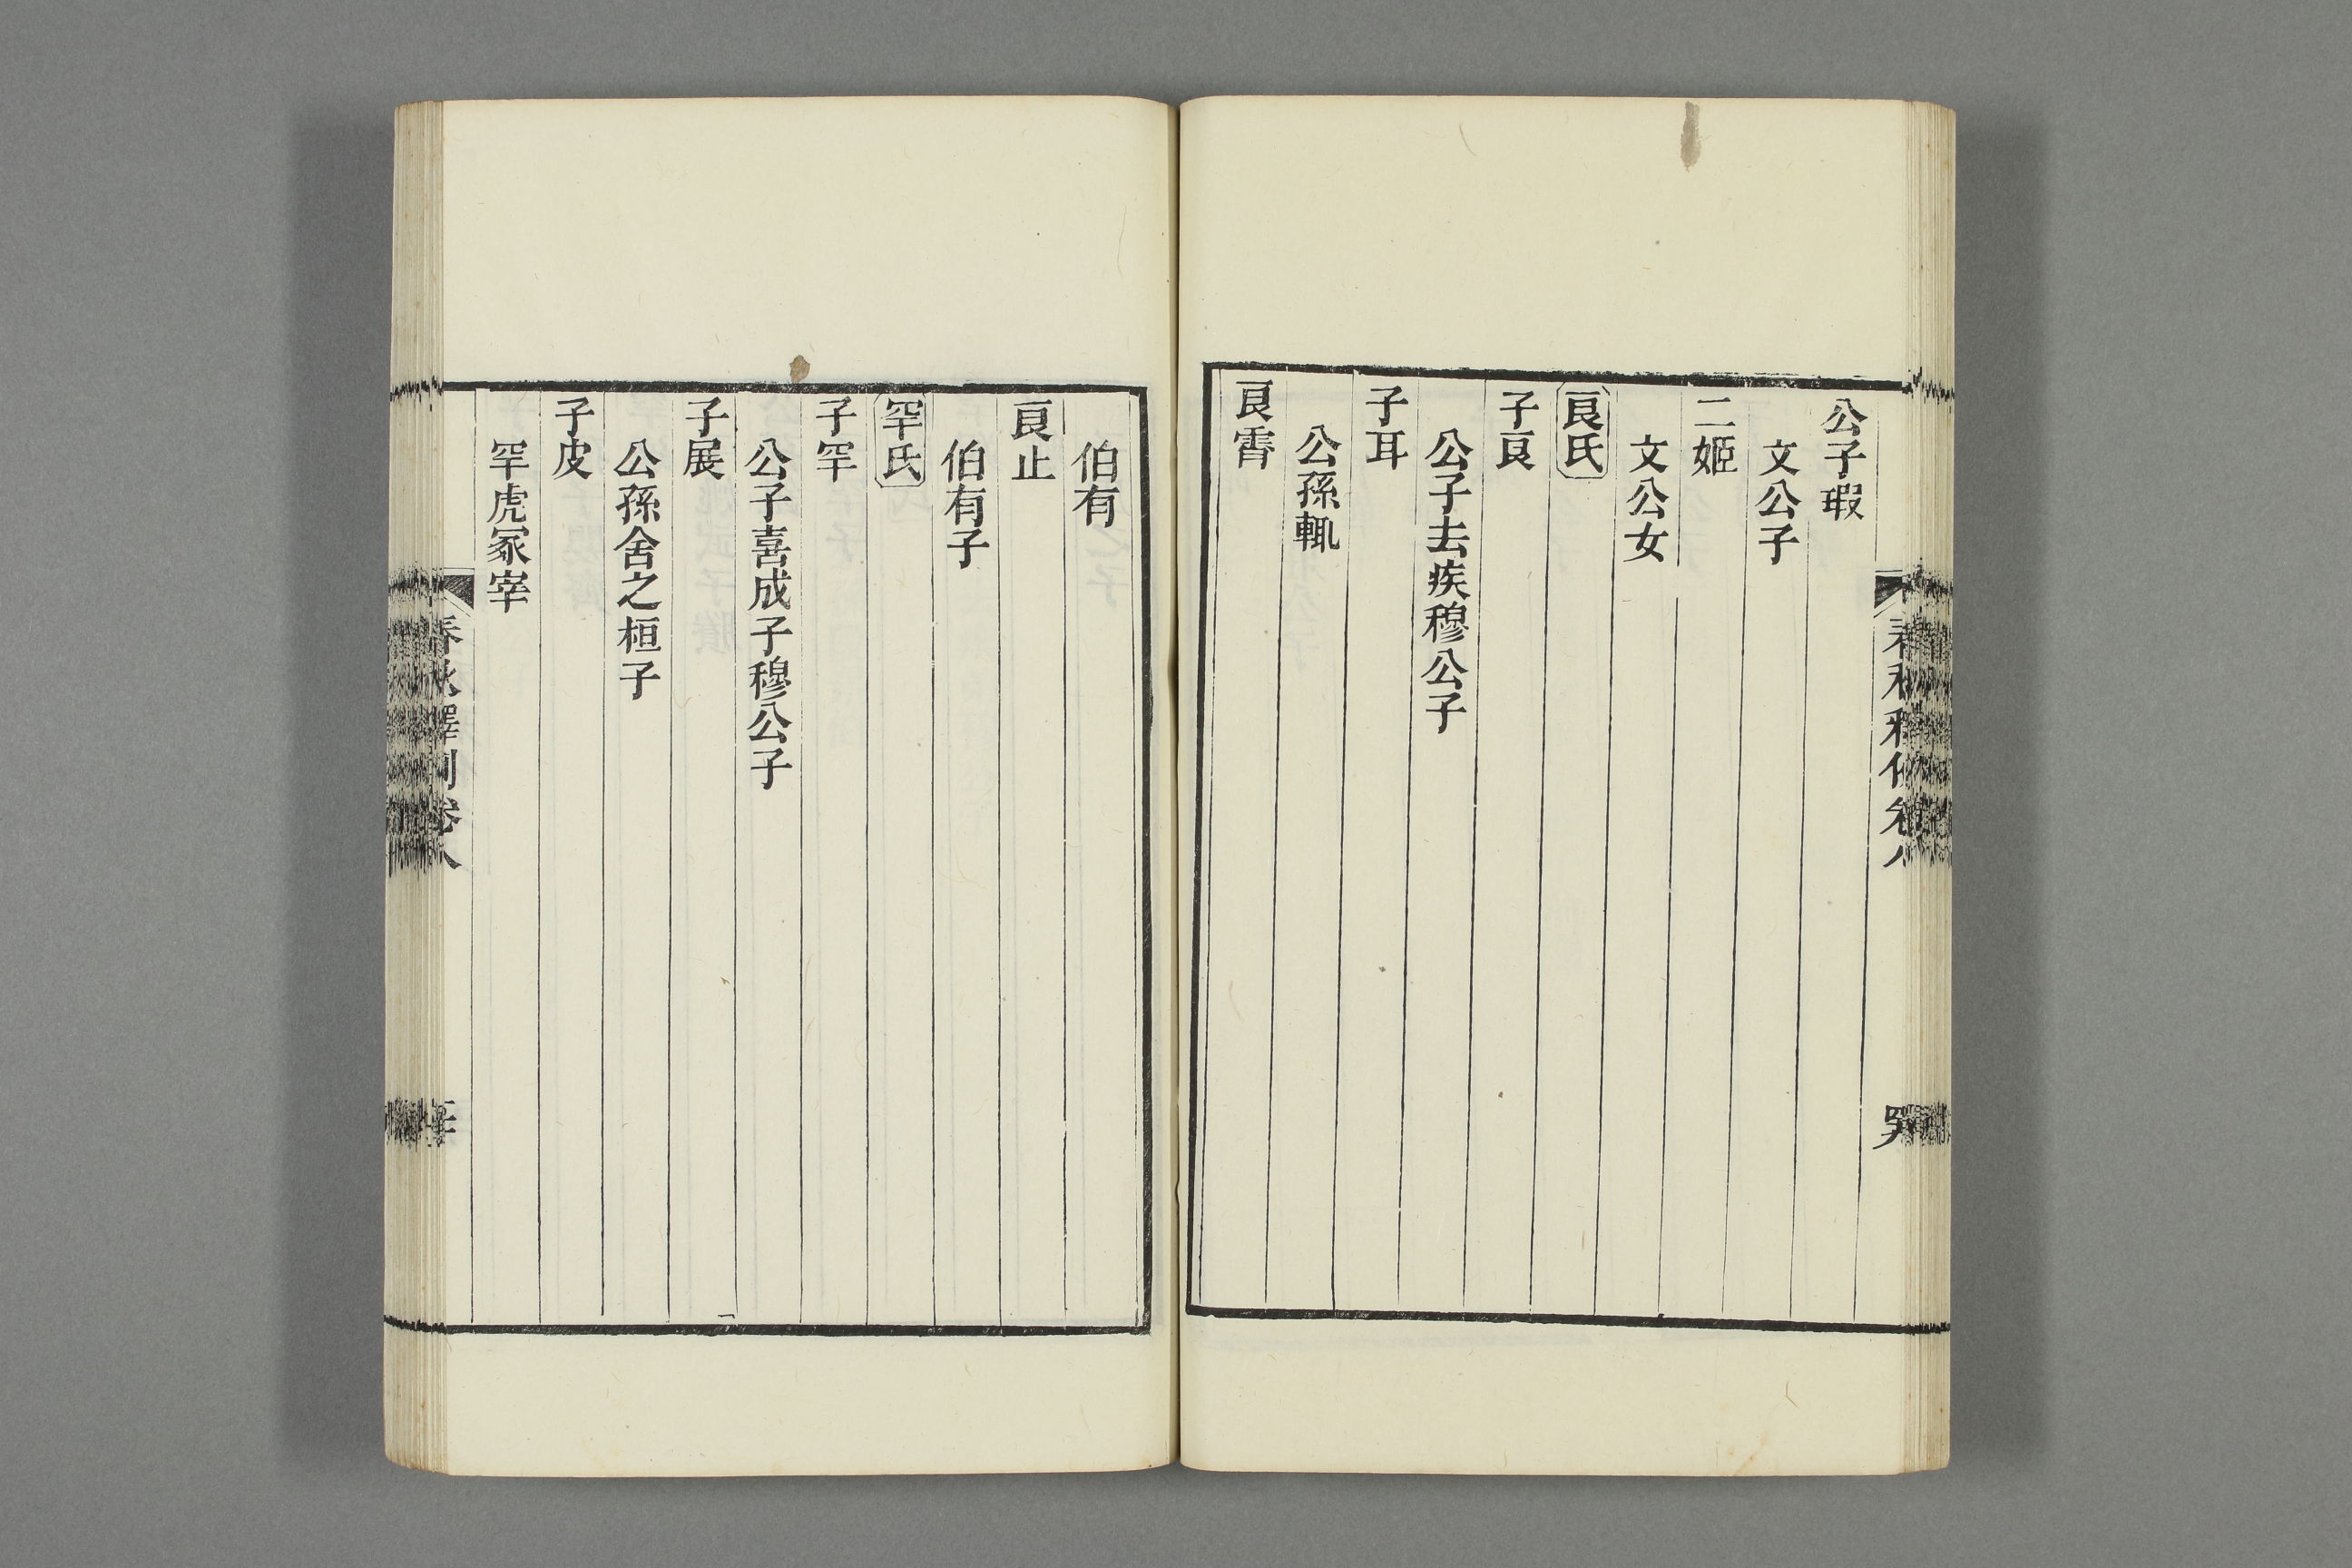 公子瑕
文公子
二姬
文公女
良氏
子良
公子去疾穆公子
子耳
公孫輒
良霄
伯有
良止
伯有子
罕氏
子罕
公子喜成子穆公子
子展
公孫舍之桓子
子皮
罕虎冢宰
春秋釋例卷八